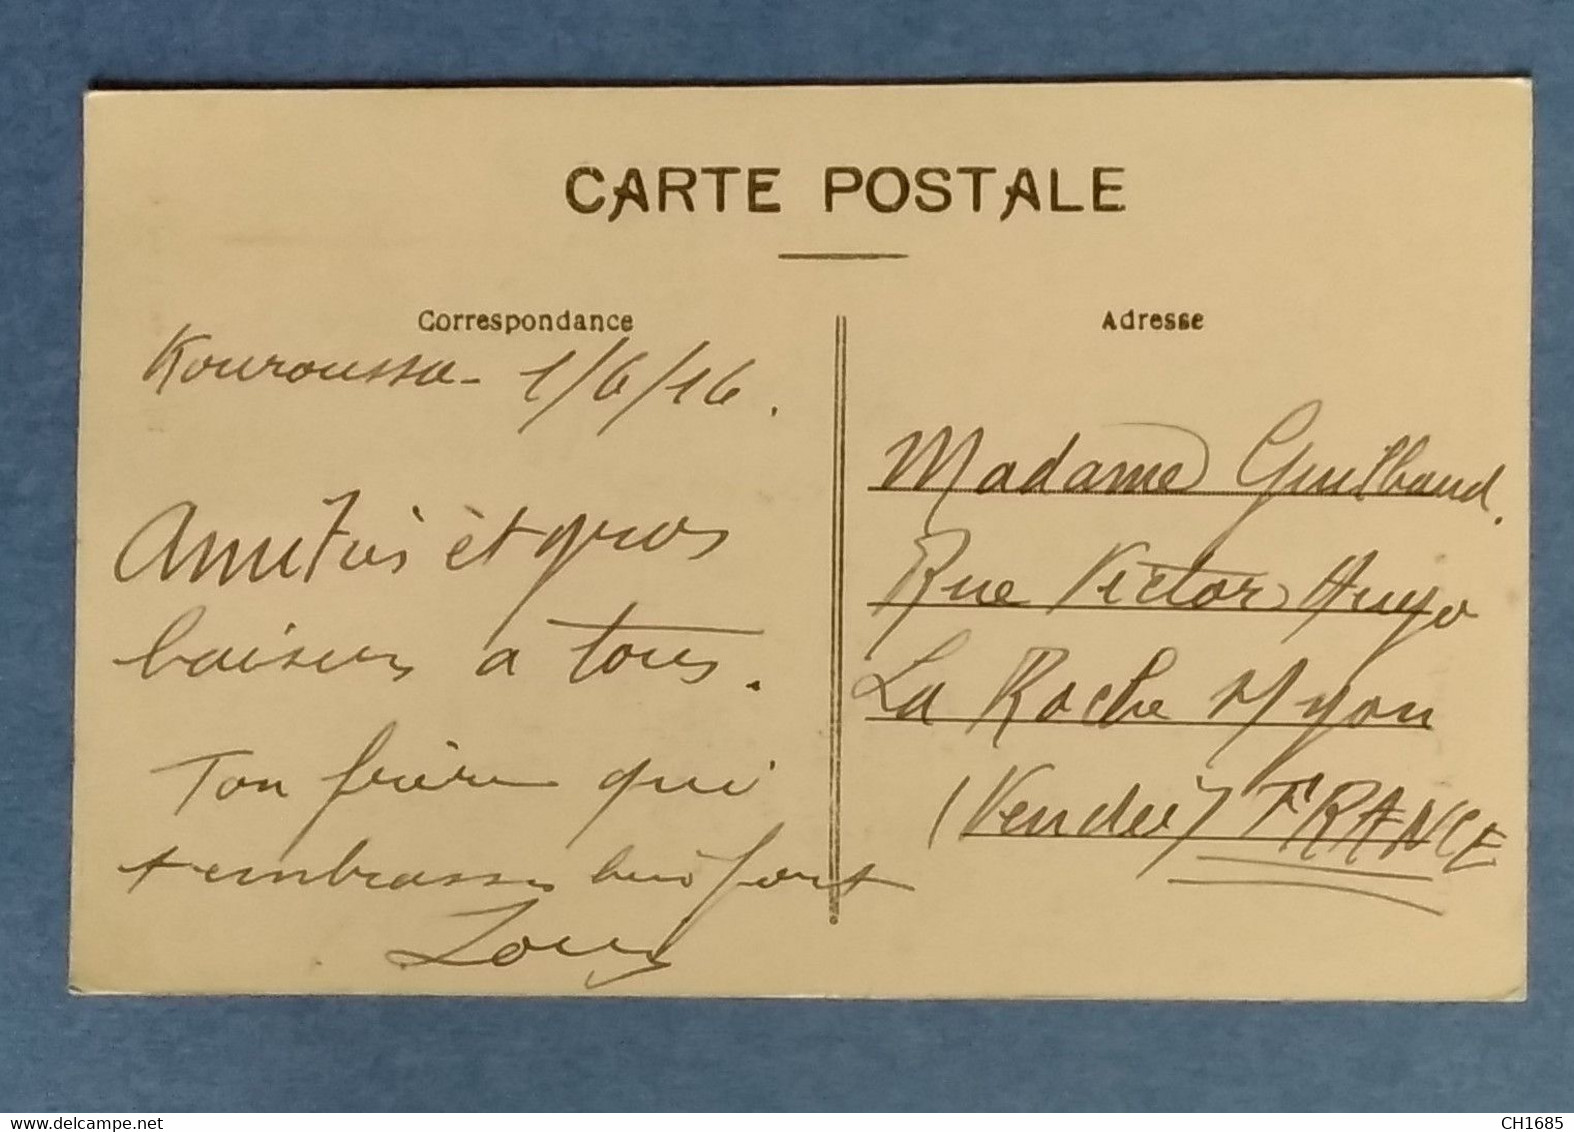 CARTE POSTALE
Correspondance
Kouroussa - 1/6/16.
Amitiés et gros
baisers a tous.
Ton frère qui
t embrasse bien fort
Louis
Adresse
Madame Guilbaud.
Rue Victor Hugo
La Roche s/yon
(Vendée) FRANCE
www.delcampe.net
CH1685